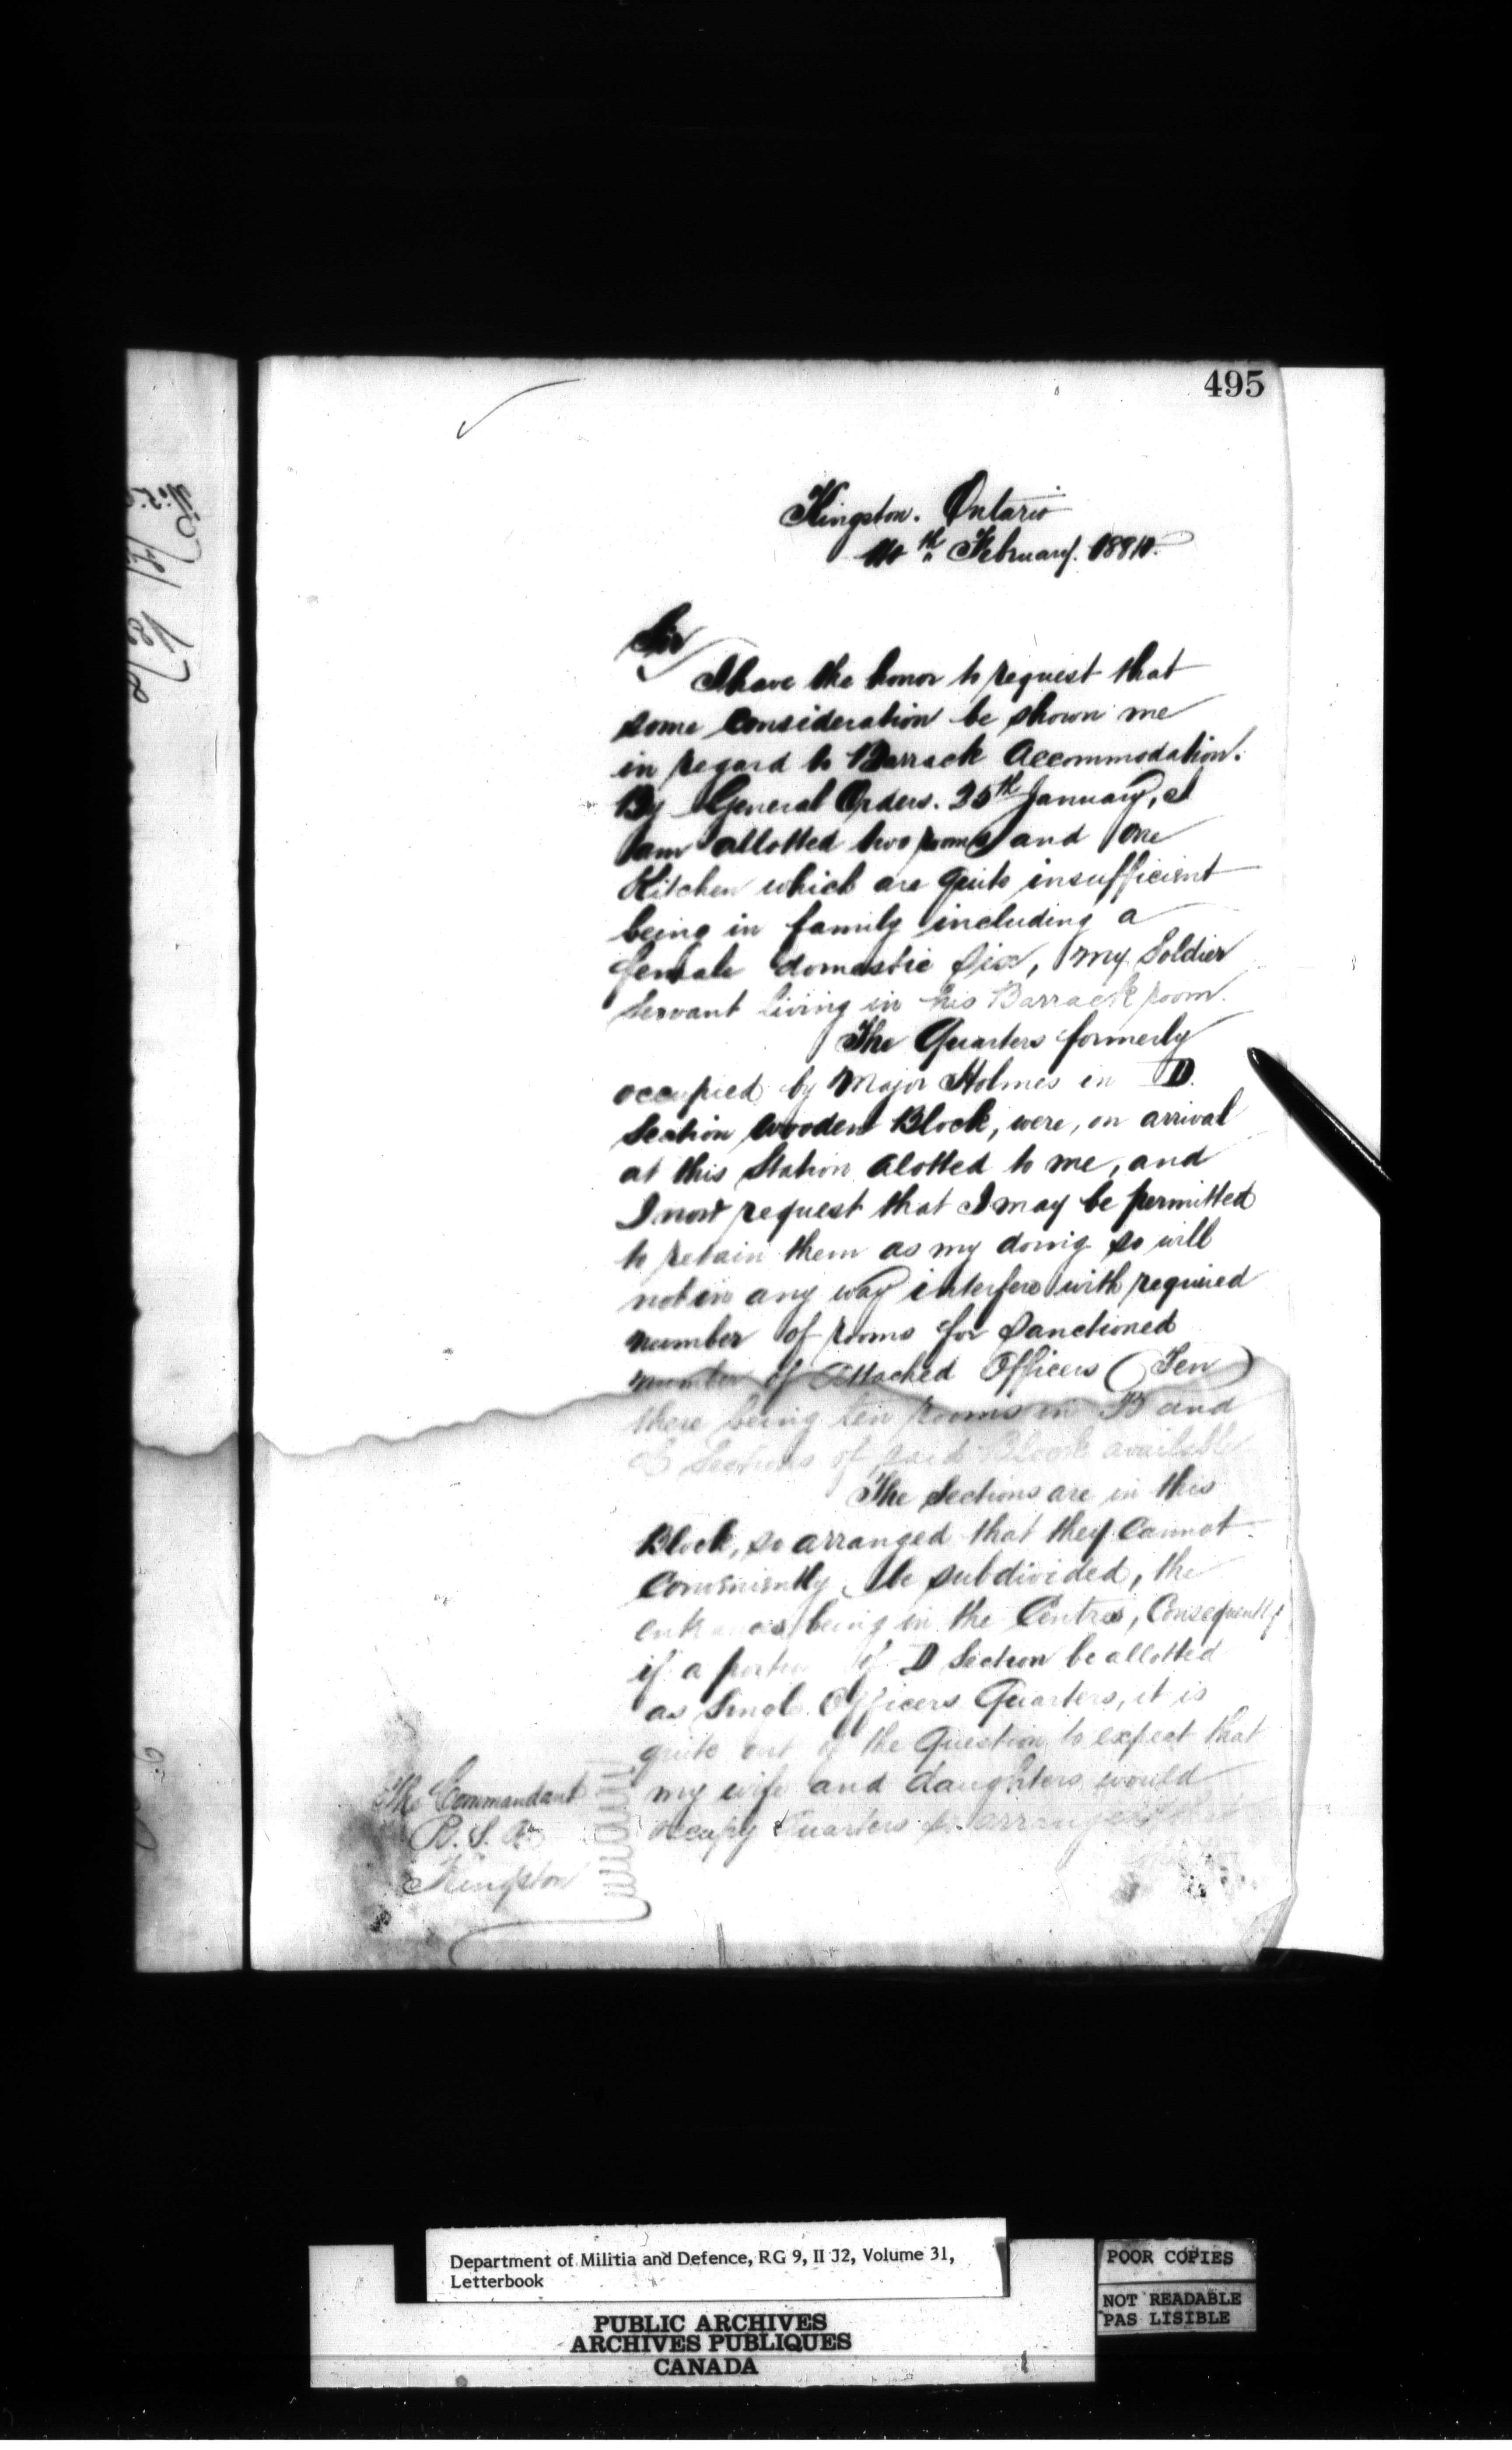 495
Kingston. Ontario
th February. 188
Sir
I have the honor to request that
some Consideration be shown me
in regard to Barrack Accommodation.
By General Orders. 25th January, I
am allotted two rooms and one
Kitchen which are quite insufficient
being in family including a
female domestic six, my Soldier
Servant living in his Barrack room.
The Quarters formerly
occupied by Major Holmes in D.
Section Wooden Block, were, on arrival
at this Station alotted to me, and
I now request that I may be permitted
to retain them as my doing so will
not in any way interfere with required
number of rooms for Sanctioned
number of Attached Officers (Ten)
there being ten rooms in B and
Sections of said Block available
The Sections are in this
Block, so arranged that they Cannot
Conveniently be subdivided, the
entrances being in the Centres, Consequently
if a portion of D Section be allotted
as Single Officers Quarters, it is
quite out of the Question to expect that
my wife and daughters would
occupy Quarters so arranged that
The Commandant
Kingston
Department of Militia and Defence, RG 9, II J2, Volume 31,
Letterbook
PUBLIC ARCHIVES
ARCHIVES PUBLIQUES
CANADA
POOR COPIES
NOT READABLE
PAS LISIBLE